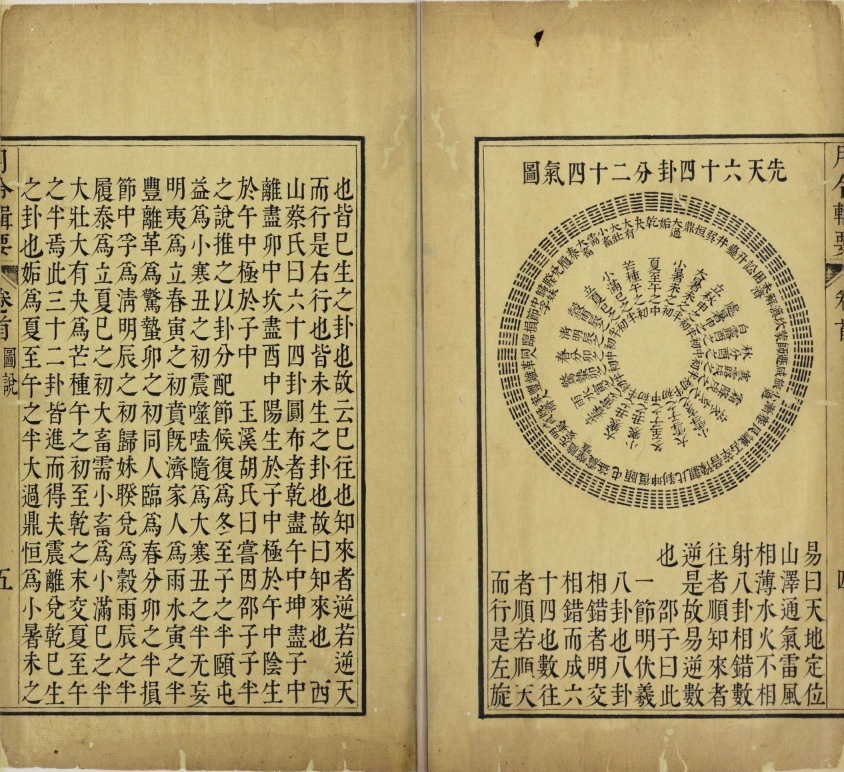 先天六十四卦分二十四氣圖
乾
姤
大過
鼎
恒
巽
井
蠱
升
訟
困
未濟
解
渙
坎
蒙
師
坤
復
頤
屯
益
損
節
中孚
歸妹
睽
兌
履
泰
大畜
需
小畜
大壯
大有
夬
夏至午之中
小暑未之初
大暑未之中
立秋申之初
芒種午之初
小滿巳之中
立夏巳之初
易曰天地定位
山澤通氣雷風
相薄水火不相
射八卦相錯數
往者順知來者
逆是故易逆數
也 邵子曰此
一節明伏羲
八卦也八卦
相錯者明交
相錯而成六
十四也數往
者順若順天
而行是左旋
也皆巳生之卦也故云巳往也知來者逆若逆天
而行是右行也皆未生之卦也故曰知來也 西
山蔡氏曰六十四卦圓布者乾盡午中坤盡子中
離盡卯中坎盡酉中陽生於子中極於午中陰生
於午中極於子中 玉溪胡氏曰嘗因邵子子半
之說推之以卦分配節候復爲冬至子之半頤屯
益爲小寒丑之初震噬嗑隨爲大寒丑之半无妄
明夷爲立春寅之初賁旣濟家人爲雨水寅之半
豐離革爲驚蟄卯之初同人臨爲春分卯之半損
節中孚爲清明辰之初歸妹睽兌爲穀雨辰之半
履泰爲立夏巳之初大畜需小畜爲小滿巳之半
大壯大有夬爲芒種午之初至乾之末交夏至午
之半焉此三十二卦皆進而得夫震離兌乾巳生
之卦也姤爲夏至午之半大過鼎恒爲小暑未之
月令輯要
卷首
圖說
五